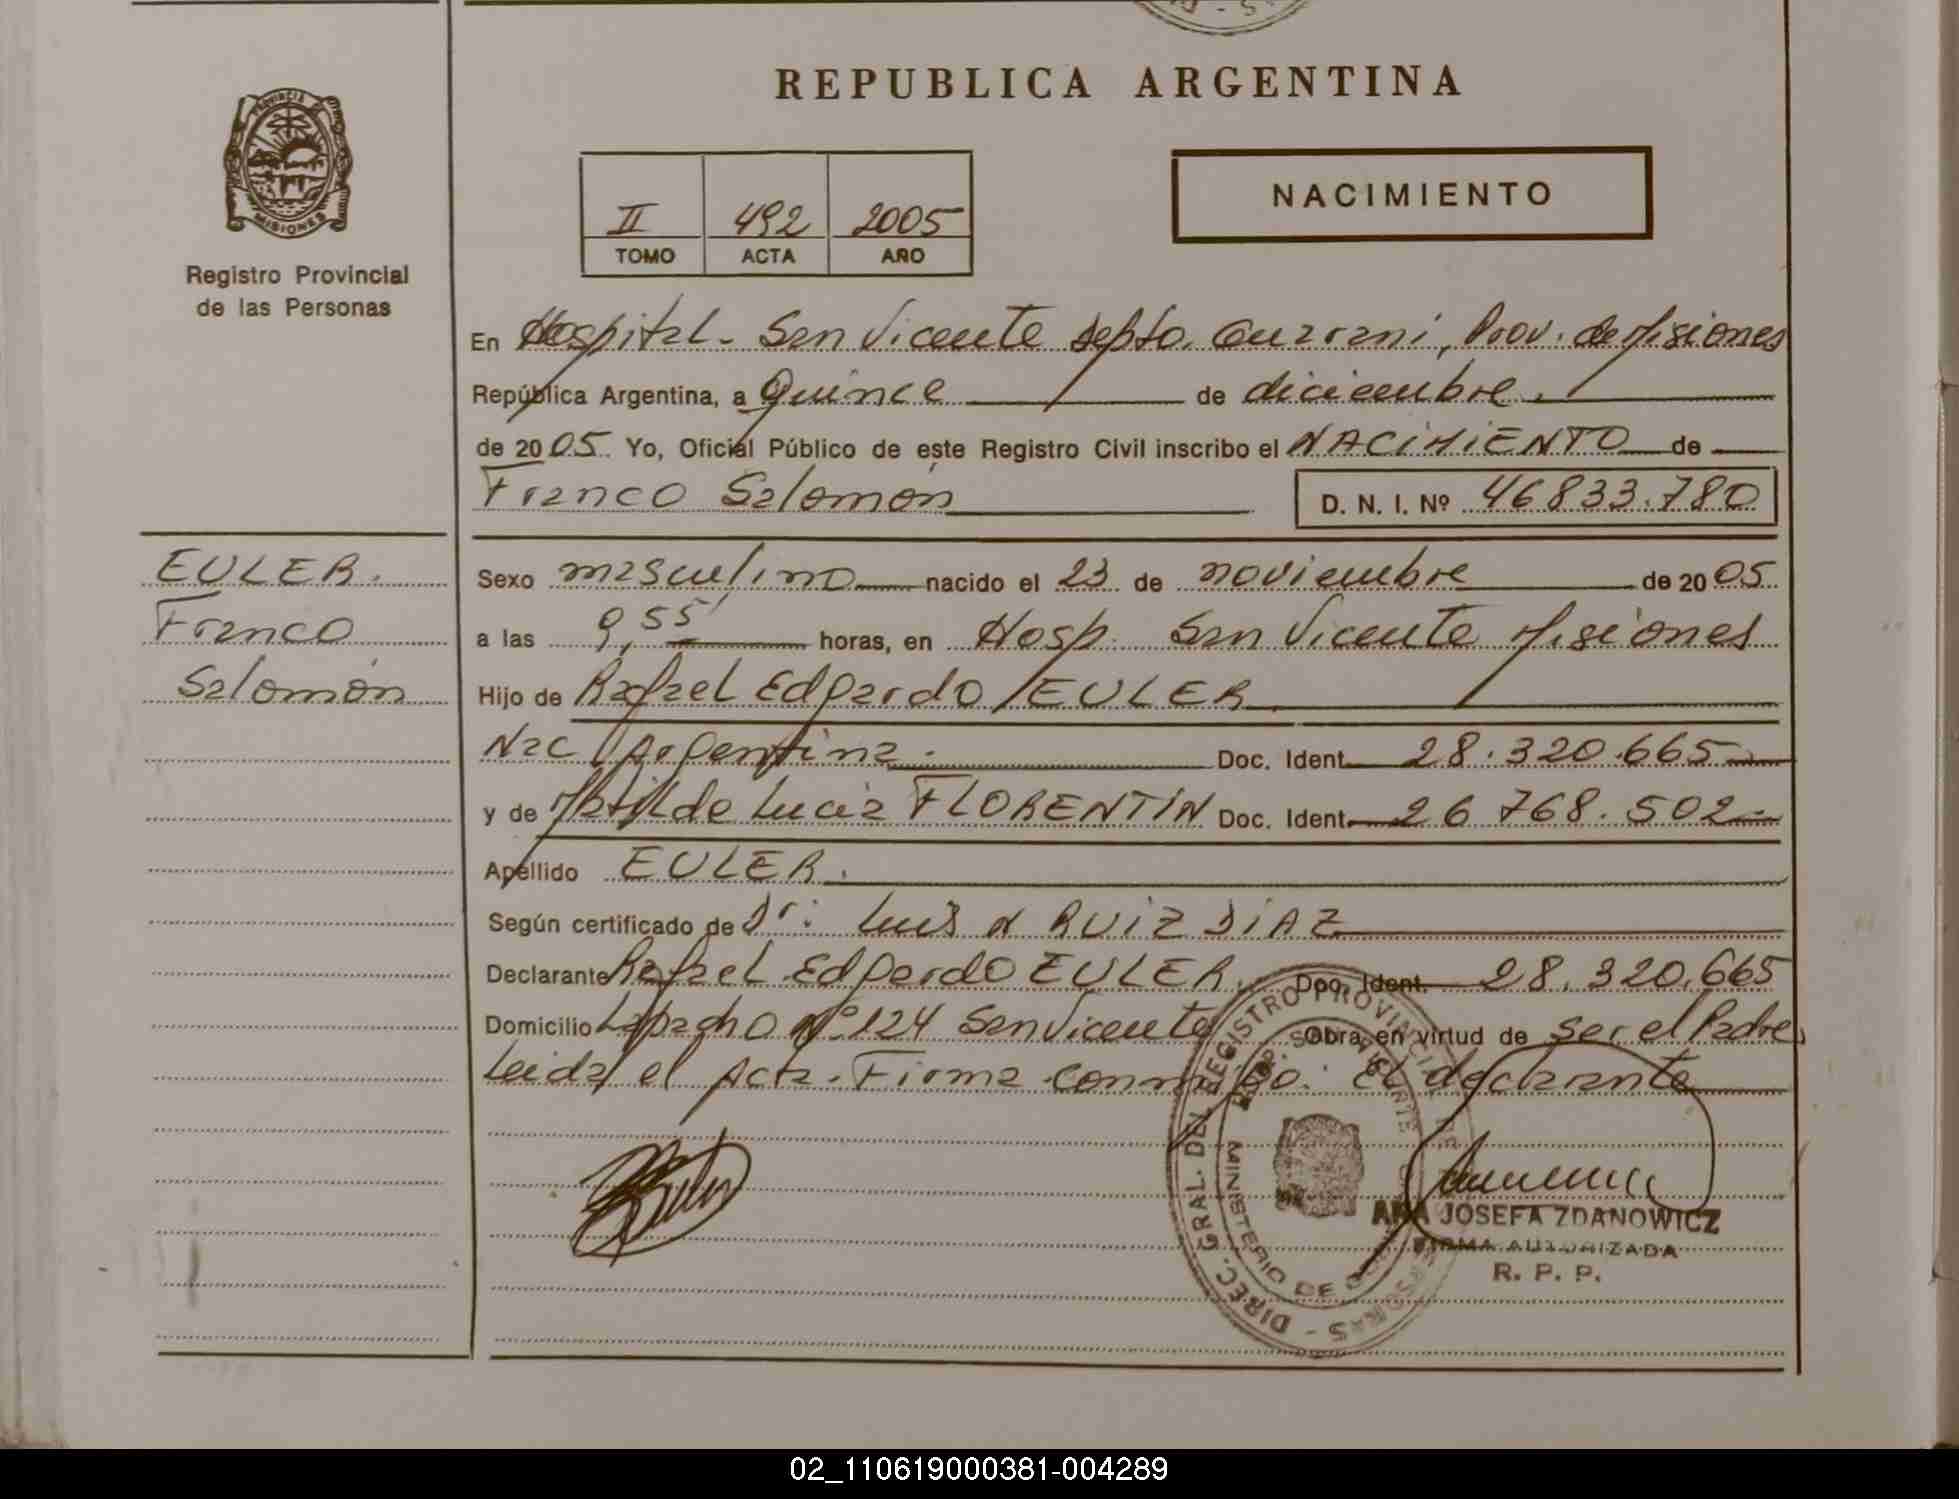 REPUBLICA ARGENTINA
PROVINCIA
MISIONES
Registro Provincial
de las Personas
II 492 2005
TOMO ACTA AÑO
NACIMIENTO
En Hospital - San Vicente Depto. Guaraní, Prov. de Misiones
República Argentina, a Quince de diciembre.
de 2005. Yo, Oficial Público de este Registro Civil inscribo el NACIMIENTO de
Franco Salomón D. N. I. Nº 46833.780
EULER.
Franco
Salomón
Sexo masculino nacido el 23 de noviembre de 2005
a las 9,55 horas, en Hosp. San Vicente Misiones
Hijo de Rafael Edgardo EULER
Nac Argentina. Doc. Ident. 28.320.665
y de Matilde Lucía FLORENTÍN Doc. Ident. 26 768.502
Apellido EULER.
Según certificado de Dr: Luis A RUIZ DIAZ
Declarante Rafael Edgardo EULER. Doc. Ident. 28.320.665
Domicilio Lapacho Nº 124 San Vicente Obra en virtud de Ser el Padre,
Leida el Acta. Firma conmigo. El declarante
DIREC. GRAL. DEL REGISTRO PROVINCIAL DE PERSONAS
MINISTERIO DE
ANA JOSEFA ZDANOWICZ
FIRMA AUTORIZADA
R. P. P.
02_110619000381-004289